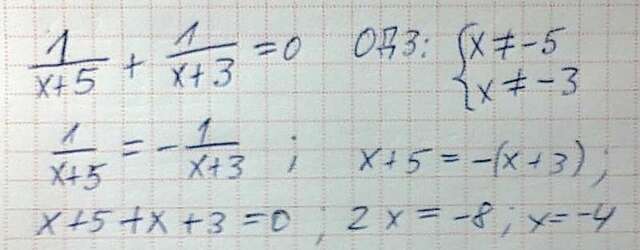 1/(x+5) + 1/(x+3) = 0 ОДЗ: { x ≠ -5
x ≠ -3
1/(x+5) = - 1/(x+3) ; x+5 = -(x+3);
x+5+x+3=0; 2x=-8; x=-4